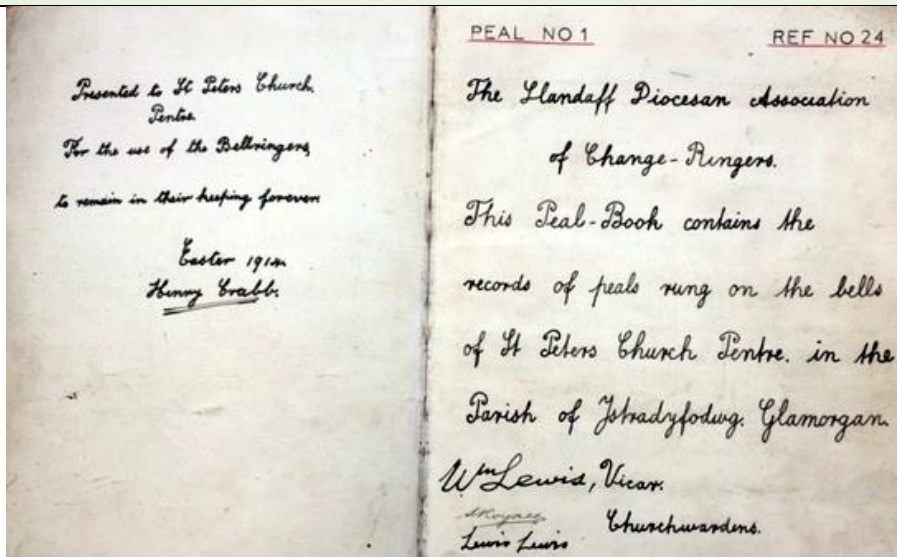 Presented to St Peters Church.
Pentre.
For the use of the Bellringers,
to remain in their keeping forever.
Easter 1914.
Henry Crabb.
PEAL NO 1 REF NO 24
The Llandaff Diocesan Association
of Change-Ringers.
This Peal-Book contains the
records of peals rung on the bells
of St Peters Church Pentre. in the
Parish of Ystradyfodwg. Glamorgan.
Wm Lewis, Vicar.
Churchwardens.
Lewis Lewis